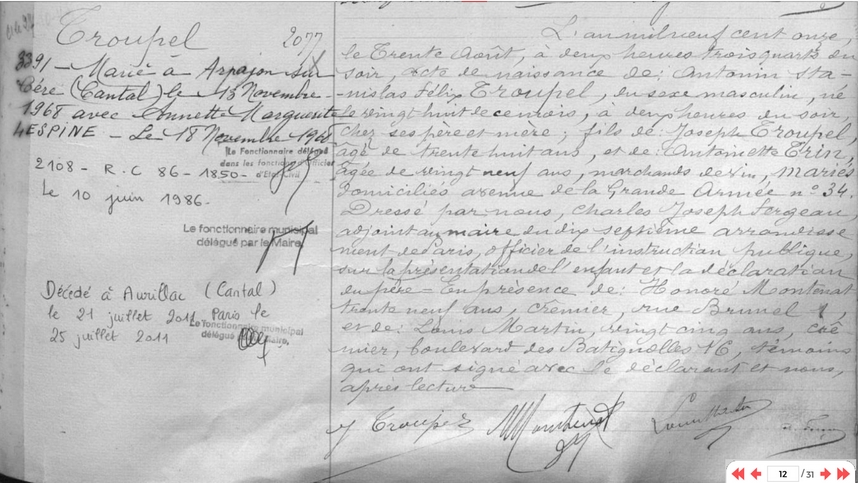 Troupel
2077
3391 - Marié à Arpajon sur
Cère (Cantal) le 15 Novembre
1968 avec Annette Marguerite
LESPINE - Le 18 Novembre 1968
Le Fonctionnaire délégué
dans les fonctions d'officier
d'Etat Civil
2108 - R.C 86-1850-
Le 10 juin 1986.
Le fonctionnaire municipal
délégué par le Maire,
Décédé à Aurillac (Cantal)
le 21 juillet 2011 Paris le
25 juillet 2011
Le fonctionnaire municipal
délégué Maire,
L'an mil neuf cent onze,
le Trente Août, à deux heures trois quarts du
soir, acte de naissance de: Antonin Sta-
-nislas Félix Troupel, du sexe masculin, né
le vingt huit de ce mois, à deux heures du soir,
chez ses père et mère; fils de: Joseph Troupel,
âgé de trente huit ans, et de: Antoinette Trin,
âgée de vingt neuf ans, marchands de vin, mariés
domiciliés avenue de la Grande Armée n° 34.
Dressé par nous, Charles Joseph Sergeau,
adjoint au maire du dix septième arrondisse
ment de Paris, officier de l'instruction publique,
sur la présentation de l'enfant et la déclaration
du père = En présence de: Honoré Montenat
trente neuf ans, crémier, rue Brunel 1,
et de: Louis Martin, vingt cinq ans, cré
mier, boulevard des Batignolles 16, témoins
qui ont signé avec le déclarant et nous,
après lecture
J Troupel
12 / 31